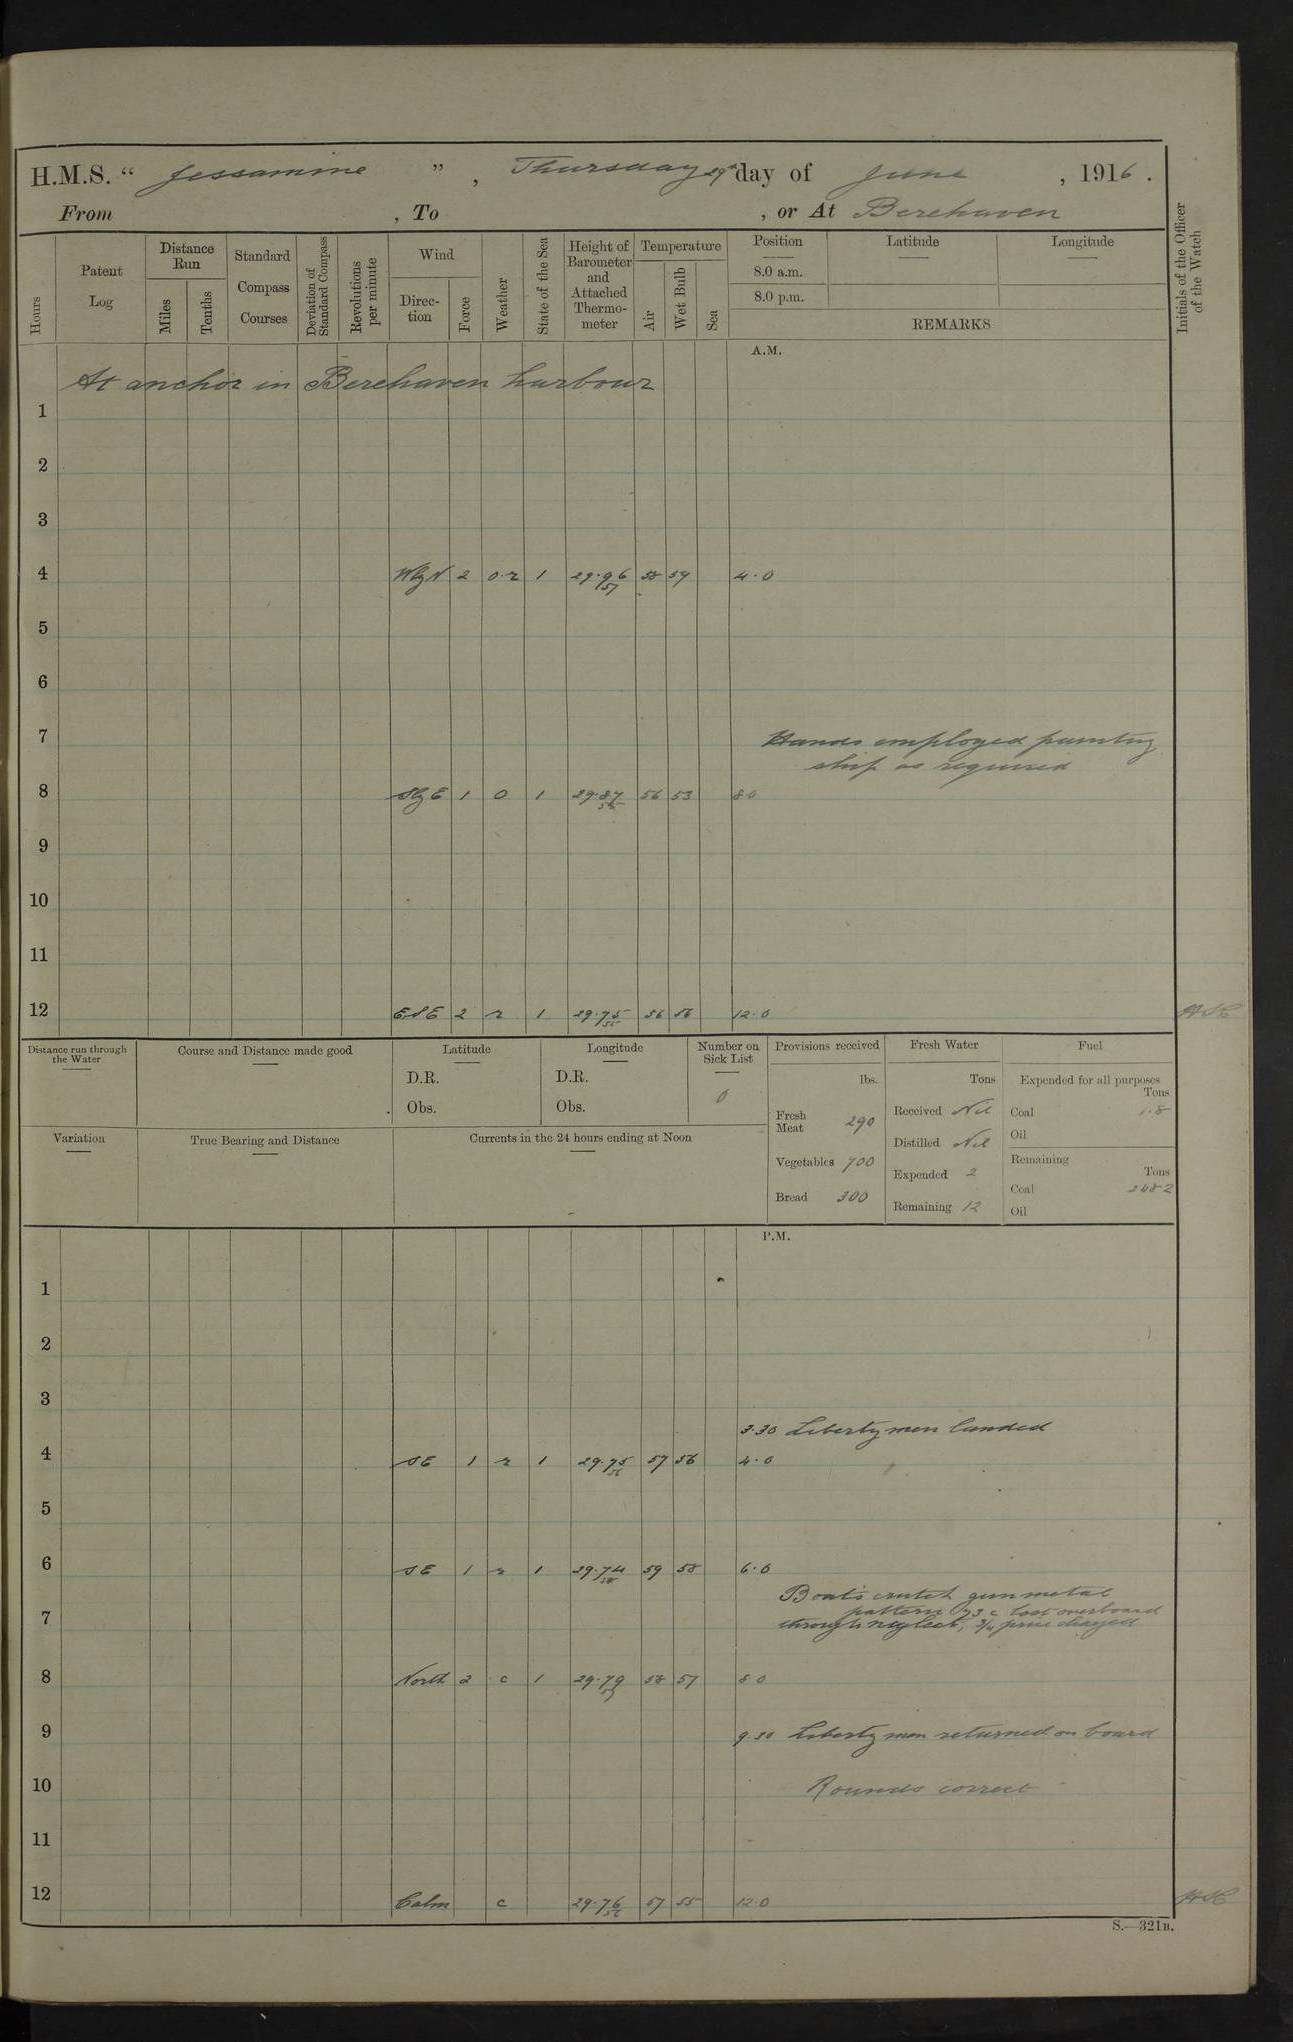 H.M.S. “ Jessamine ” , Thursday 29th day of June , 1916 .
From , To , or At Berehaven
Hours
Patent Log
Distance Run
Miles
Tenths
Standard Compass Courses
Deviation of Standard Compass
Revolutions per minute
Wind
Direc-tion
Force
Weather
State of the Sea
Height of Barometer and Attached Thermo-meter
Temperature
Air
Wet Bulb
Sea
Position Latitude Longitude
8.0 a.m.
8.0 p.m.
REMARKS
Initials of the Officer of the Watch
A.M.
At anchor in Berehaven harbour
1
2
3
4 WbyN 2 o.r 1 29.96 57 58 57 4.0
5
6
7 Hands employed painting
ship as required
8 SbyE 1 o 1 29.87 56 53 8.0
9
10
11
12 ESE 2 r 1 29.75 55 56 56 12.0
Distance run through the Water
Course and Distance made good
Latitude
D.R.
Obs.
Longitude
D.R.
Obs.
Number on Sick List
0
Provisions received
lbs.
Fresh Meat 290
Vegetables 700
Bread 300
Fresh Water
Tons
Received Nil
Distilled Nil
Expended 2
Remaining 12
Fuel
Expended for all purposes
Tons
Coal 1.8
Oil
Remaining
Tons
Coal
Oil
Variation
True Bearing and Distance
Currents in the 24 hours ending at Noon
P.M.
1
2
3
3.30 Liberty men landed
4 SE 1 r 1 29.75 56 57 56 4.0
5
6 SE 1 r 1 29.74 58 59 58 6.0
Boat's crutch gunmetal
pattern 73 c lost overboard
7 through neglect, 3/4 price charged
8 North 2 c 1 29.79 58 57 8.0
9 9.30 Liberty men returned on board
10 Rounds correct
11
12 Calm c 29.76 56 57 55 12.0
S.—321B.